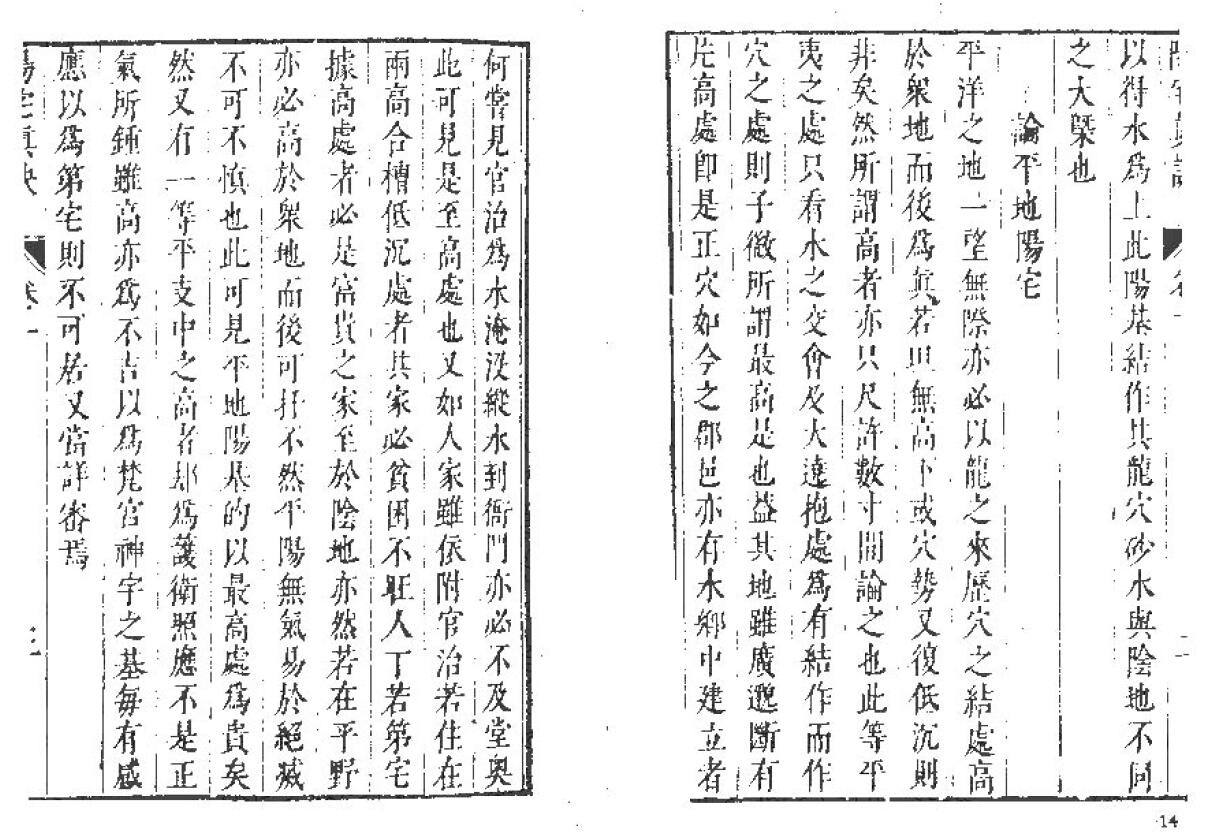 陽宅眞訣 卷一
以得水爲上此陽基結作其龍穴砂水與陰地不同
之大槩也
論平地陽宅
平洋之地一望無際亦必以龍之來歷穴之結處高
於衆地而後爲眞若坦無高下或穴勢又復低沉則
非矣然所謂高者亦只尺許數寸間論之也此等平
夷之處只看水之交會及大遶抱處爲有結作而作
穴之處則子微所謂最高是也蓋其地雖廣邈斷有
片高處卽是正穴如今之郡邑亦有水鄉中建立者
何嘗見官治爲水淹没縱水到衙門亦必不及堂奥
此可見是至高處也又如人家雖依附官治若住在
兩高合槽低沉處者其家必貧困不旺人丁若第宅
據高處者必是富貴之家至於陰地亦然若在平野
亦必高於衆地而後可扦不然平陽無氣易於絕滅
不可不慎也此可見平地陽基的以最高處爲貴矣
然又有一等平支中之高者却爲護衛照應不是正
氣所鍾雖高亦爲不吉以爲梵宫神宇之基每有感
應以爲第宅則不可居又當詳審焉
陽宅眞訣 卷一
14